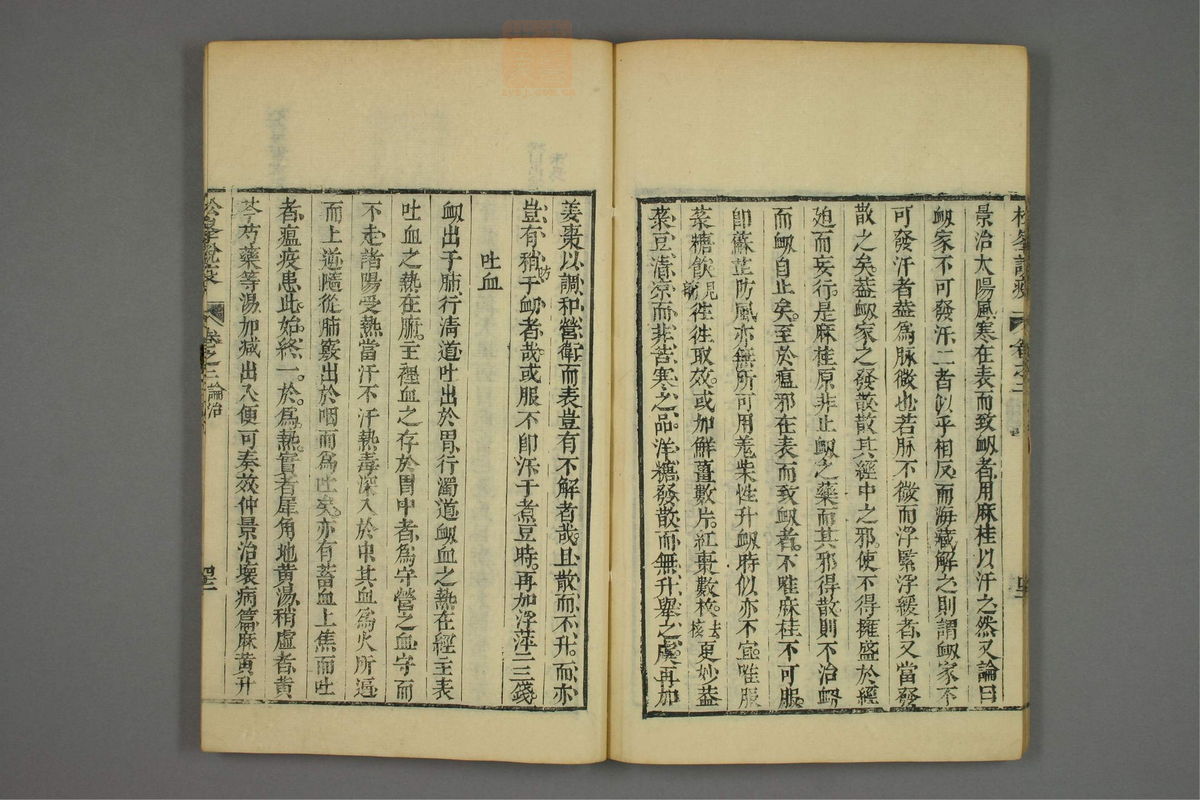 景治太陽風寒在表而致衂者用麻桂以汗之然又論曰
衂家不可發汗二者似乎相反而海藏解之則謂衂家不
可發汗者葢爲脉微也若脉不微而浮緊浮緩者又當發
散之矣葢衂家之發散散其經中之邪使不得擁盛於經
廹而妄行是麻桂原非止衂之藥而其邪得散則不治衂
而衂自止矣至於瘟邪在表而致衂者不唯麻桂不可服
卽蘇芷防風亦無所可用羗柴性升衂時似亦不宜唯服
菉糖飲見新往往取效或加鮮薑數片紅棗數枚去核更妙葢
菉豆清凉而非苦寒之品洋糖發散而無升舉之虞再加
松峯說疫 卷之二 四三
姜棗以調和營衛而表豈有不解者哉且散而不升而亦
豈有稍妨于衂者哉或服不卽汗于煮豆時再加浮萍三錢
吐血
衂出于肺行清道吐出於胃行濁道衂血之熱在經主表
吐血之熱在腑主裡血之存於胃中者爲守營之血守而
不走諸陽受熱當汗不汗熱毒深入於中其血爲火所逼
而上逆隨從肺竅出於咽而爲吐矣亦有蓄血上焦而吐
者瘟疫患此始終一於爲熱實者犀角地黃湯稍虛者黃
芩芍藥等湯加減出入便可奏效仲景治壞病篇麻黃升
松峯說疫 卷之二 論治 四三